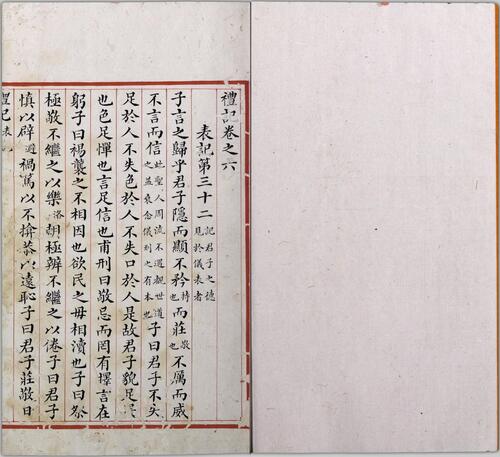 禮記卷之六
表記第三十二 記君子之德見於儀表者
子言之歸乎君子隱而顯不矜持也而莊敬也不厲而威
不言而信此聖人周流不遇觀世道之益衰念儀刑之有本也子曰君子不失
足於人不失色於人不失口於人是故君子貌足畏
也色足憚也言足信也甫刑曰敬忌而罔有擇言在
躬子曰裼襲之不相因也欲民之毋相瀆也子曰祭
極敬不繼之以樂洛朝極辨不繼之以倦子曰君子
慎以辟避禍篤以不揜恭以遠恥子曰君子莊敬日
禮記 表記